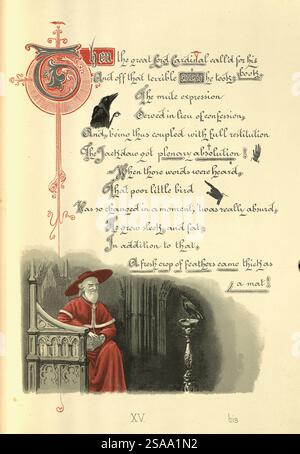 Then the great Lord Cardinal call'd for his book
And off that terrible curse he took;
The mute expression
Served in lieu of confession,
And, being thus coupled with full restitution
The Jackdaw got plenary absolution!
When those words were heard,
That poor little bird
Was so changed in a moment, 'twas really absurd,
He grew sleek, and fat,
In addition to that,
A fresh crop of feathers came thick as
a mat!
XV.
bis
alamy
Image ID: 2SAA1N2
www.alamy.com